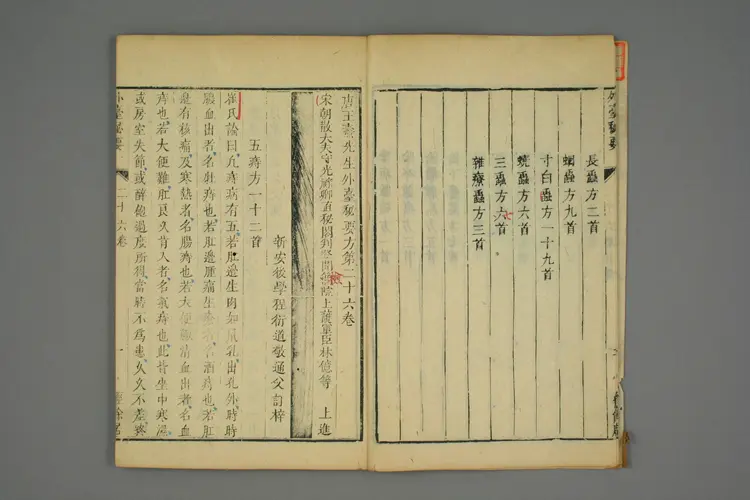 外臺秘要
長蟲方二首
蛔蟲方九首
寸白蟲方一十九首
蟯蟲方六首
三蟲方六首
雜療蟲方三首
唐王燾先生外臺秘要方第二十六卷
宋朝散大夫守光祿卿直秘閣判登聞檢院上護軍臣林億等 上進
新安後學程衍道敬通父訂梓
五痔方一十二首
崔氏論曰凡痔病有五若肛邊生肉如鼠乳出孔外時時
膿血出者名牡痔也若肛邊腫痛生瘡者名酒痔也若肛
邊有核痛及寒熱者名腸痔也若大便輒清血出者名血
痔也若大便難肛良久肯入者名氣痔也此皆坐中寒濕
或房室失節或醉飽過度所得當時不為患久久不差終
外臺秘要 二十六卷 一 經餘居